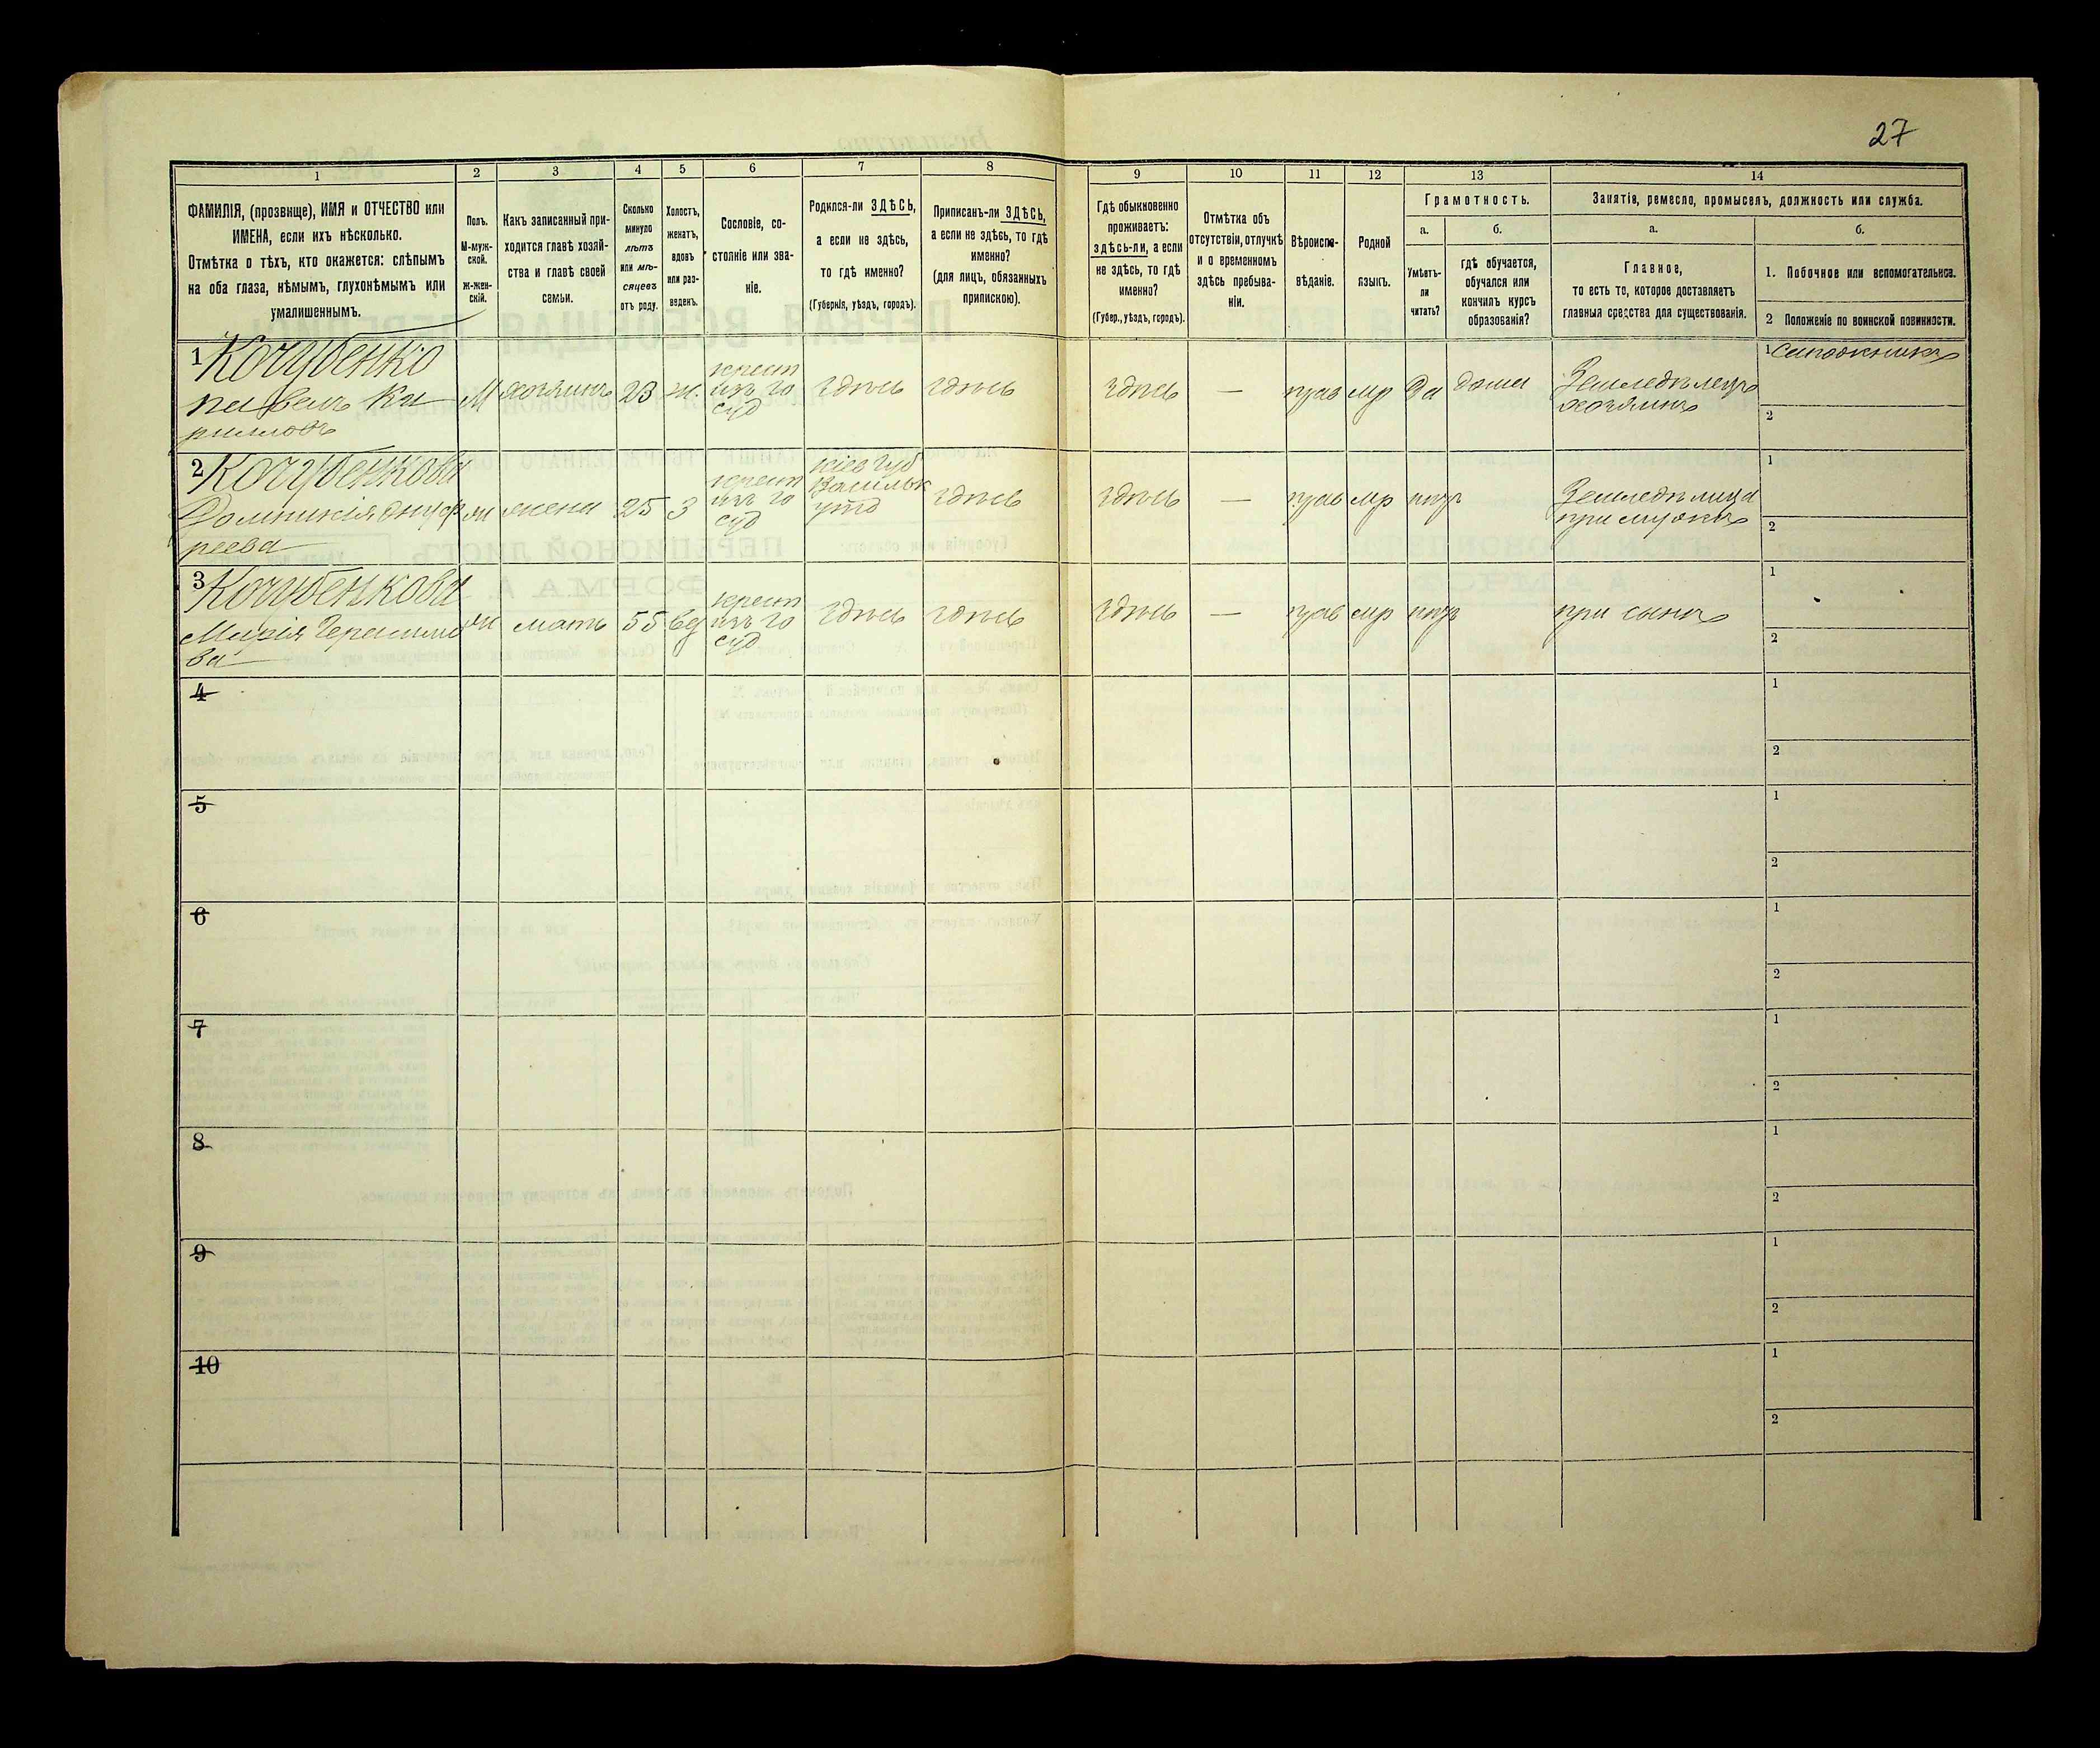 27
1
2
3
4
5
6
7
8
9
10
11
12
13
14
ФАМИЛІЯ, (прозвище), ИМЯ и ОТЧЕСТВО или
ИМЕНА, если ихъ нѣсколько.
Отмѣтка о тѣхъ, кто окажется: слѣпымъ
на оба глаза, нѣмымъ, глухонѣмымъ или
умалишеннымъ.
Полъ.
М-муж-
ской.
Ж-жен-
скій.
Какъ записанный при-
ходится главѣ хозяй-
ства и главѣ своей
семьи.
Сколько
минуло
лѣтъ
или мѣ-
сяцевъ
отъ роду.
Холостъ,
женатъ,
вдовъ
или раз-
веденъ.
Сословіе, со-
стояніе или зва-
ніе.
Родился-ли ЗДѢСЬ,
а если не здѣсь,
то гдѣ именно?
(Губернія, уѣздъ, городъ).
Приписанъ-ли ЗДѢСЬ,
а если не здѣсь, то гдѣ
именно?
(для лицъ, обязанныхъ
припискою).
Гдѣ обыкновенно
проживаетъ:
здѣсь-ли, а если
не здѣсь, то гдѣ
именно?
(Губер., уѣздъ, городъ).
Отмѣтка объ
отсутствіи, отлучкѣ
и о временномъ
здѣсь пребыва-
ніи.
Вѣроиспо-
вѣданіе.
Родной
языкъ.
Грамотность.
а.
Умѣетъ-
ли
читать?
б.
гдѣ обучается,
обучался или
кончилъ курсъ
образованія?
Занятіе, ремесло, промыселъ, должность или служба.
а.
Главное,
то есть то, которое доставляетъ
главныя средства для существованія.
б.
1. Побочное или вспомогательное.
2 Положеніе по воинской повинности.
1 Кочубенко
Павелъ Ки
рилловъ
М
хозяинъ
23
ж.
крест
изъ го
суд
здѣсь
здѣсь
здѣсь
—
прав
мр
да
дома
Земледѣлецъ
хозяинъ
1 Сапожникъ
2
2 Кочубенкова
Домникія Онуф
реева
ж
жена
25
з
крест
изъ го
суд
кіев губ
Васильк
уѣзд
здѣсь
здѣсь
—
прав
мр
нѣт
Земледѣлица
при мужѣ
1
2
3 Кочубенкова
Марія Герасимо
ва
ж
мать
55
вд
крест
изъ го
суд
здѣсь
здѣсь
здѣсь
—
прав
мр
нѣт
при сынѣ
1
2
4
1
2
5
1
2
6
1
2
7
1
2
8
1
2
9
1
2
10
1
2